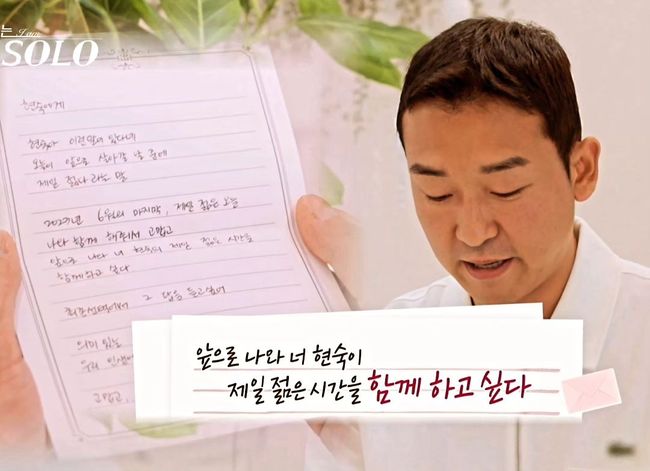 는 I am
SOLO
현숙에게
현숙아 이런말이 있다네
오늘이 앞으로 살아갈 날 중에
제일 젊다 라는 말
6월의 마지막, 제일 젊은 오늘
나와 함께 해줘서 고맙고
앞으로 나와 너 현숙이 제일 젊은 시간을
함께 하고 싶다
그 답을 듣고싶어
의미 있는
우리 인생
고맙고,
앞으로 나와 너 현숙이
제일 젊은 시간을 함께 하고 싶다